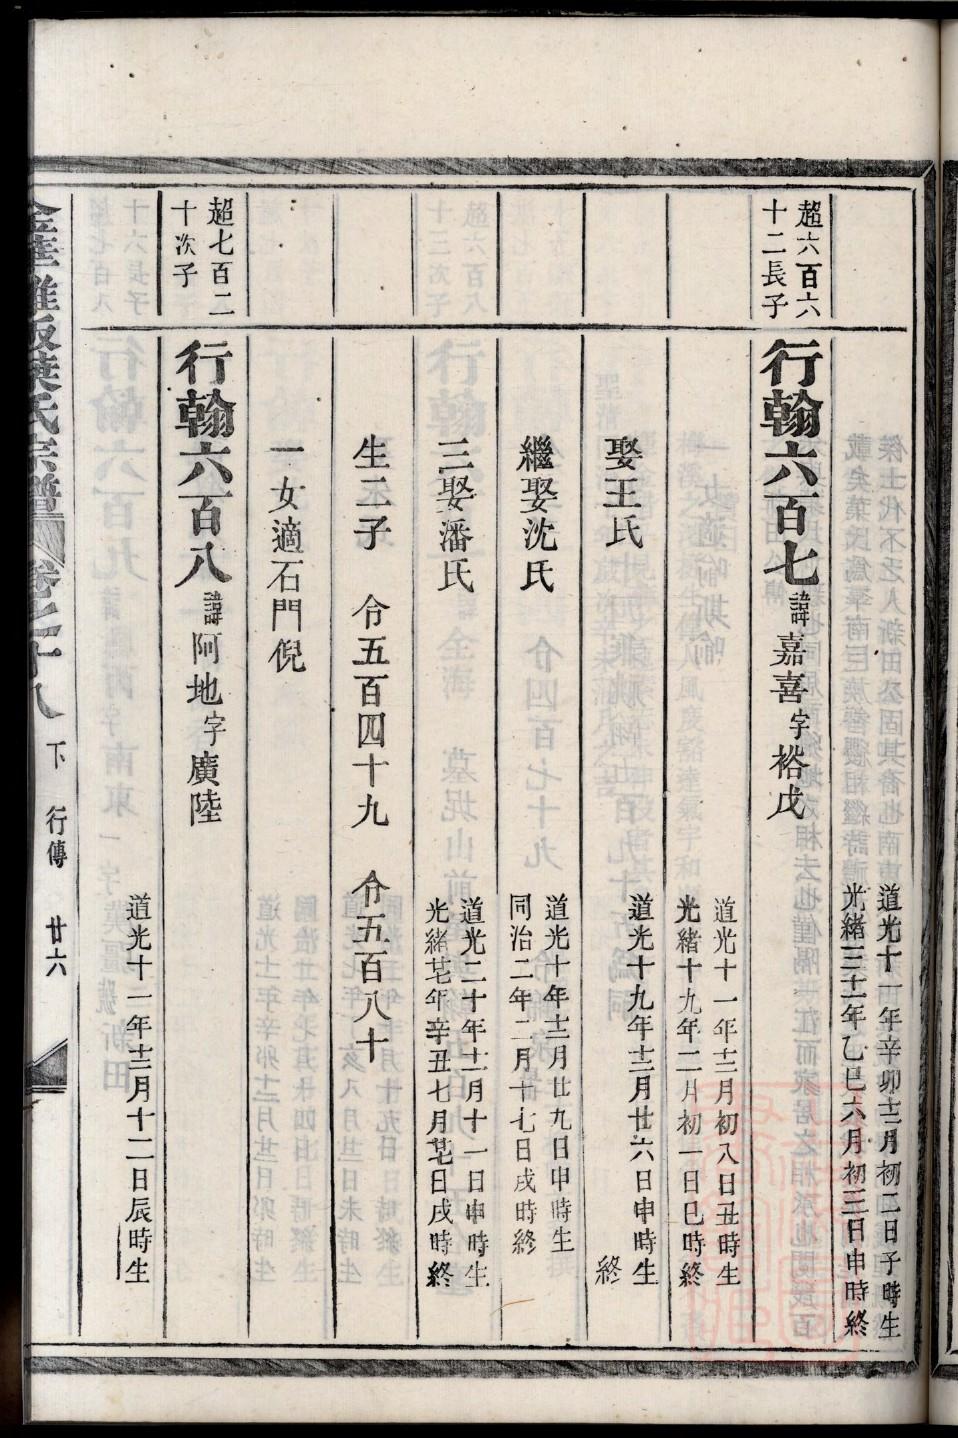 道光十一年辛卯十二月初二日子時生
光緒三十一年乙巳六月初三日申時終
超六百六
十二長子
行翰六百七 諱嘉喜 字裕戊
道光十一年十二月初八日丑時生
光緒十九年二月初一日巳時終
娶王氏
道光十九年十二月廿六日申時生
終
繼娶沈氏
道光十年十二月廿九日申時生
同治二年二月十七日戌時終
三娶潘氏
道光二十年十二月十一日申時生
光緒廿七年辛丑七月廿七日戌時終
生二子 令五百四十九 令五百八十
一女適石門倪
超七百二
十次子
行翰六百八 諱阿地 字廣陸
道光十一年十二月十二日辰時生
葉氏宗譜 卷之十八 下 行傳 廿六